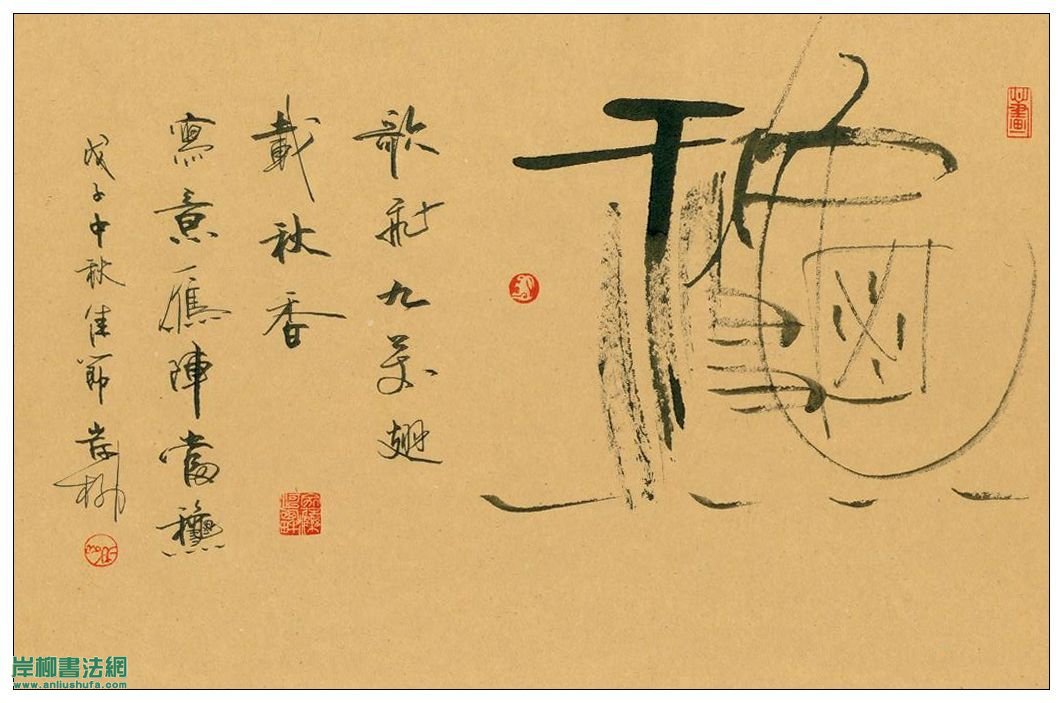 歌飛九萬翅
載秋香
寫意雁陣當
戊子中秋佳節岸柳
岸柳書法網
www.anliushufa.com